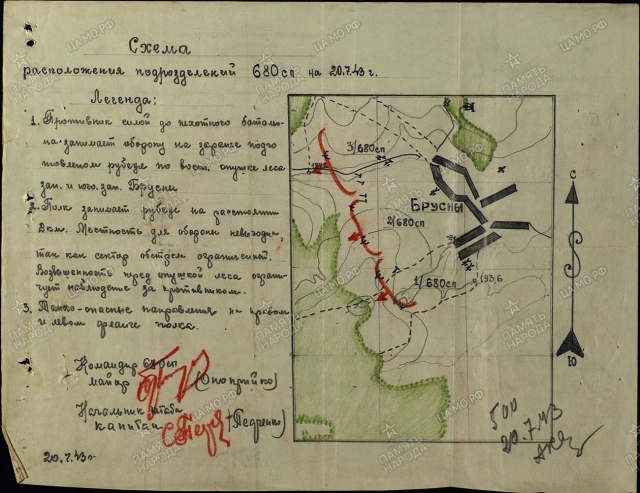 Схема
расположения подразделений 680сп на 20.7.43 г.
Легенда:
1. Противник силой до пехотного баталь-
на занимает оборону на заранее подго
товленом рубеже по вост. опушке леса
зап. и юго. зап. Брусны
2. Полк занимает рубеж на расстояни
2км. Местность для обороны невыгодна,
так как сектор обстрела ограниченный.
Возвышенность пред опушкой леса ограни-
чует наблюдение за противником.
3. Танко-опасные направления на правом
и левом фланге полка.
Командир 680сп
майор (Оноприйко)
Начальник штаба
капитан (Педренко)
20.7.43г.
3/680сп
2/680сп
1/680сп
Брусны
193,6
С
Ю
500
20.7.43
ПАМЯТЬ НАРОДА
ЦАМО.РФ